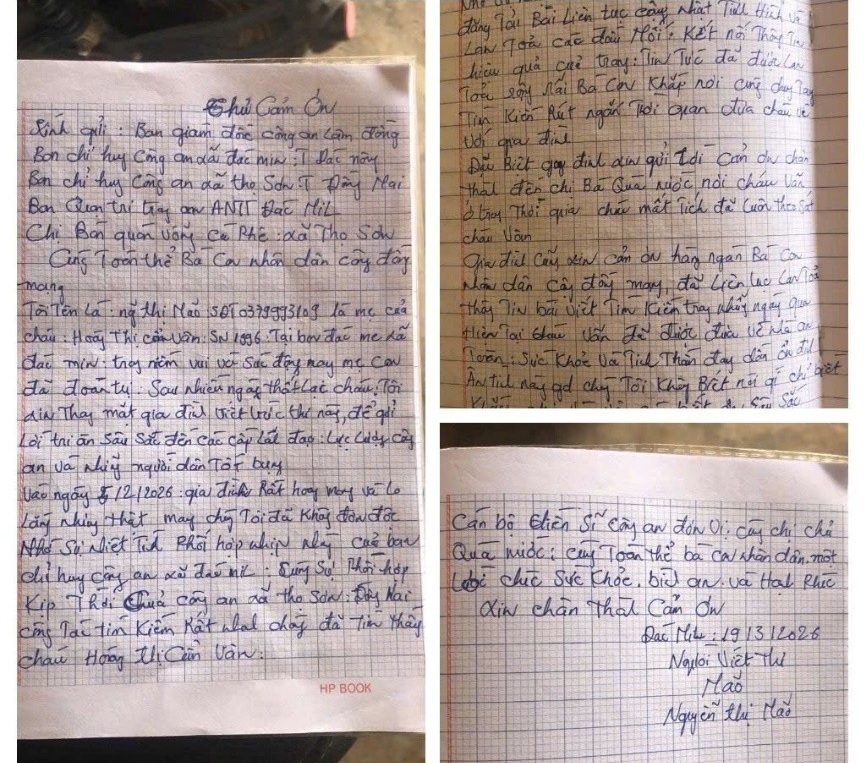 Thư Cảm Ơn
Kính gửi: Ban giám đốc công an Lâm đồng
Ban chỉ huy Công an xã đắc min: T Đắc nông
Ban chỉ huy Công an xã thọ Sơn T Đồng Nai
Ban Quản trị trang an ANTT Đắc Mil
Chị Bán quán võng Cà Phê: xã Thọ Sơn
Cùng Toàn thể Bà Con nhân dân cộng đồng
mạng
Tôi Tên Là: ng thị Mão SĐT 0379993109 là mẹ của
cháu: Hoàng Thị Cẩm Vân: SN 1996. Tại
đắc min: trong niềm vui và may mẹ Con
đã đoàn tụ: Sau nhiều ngày thất Lạc cháu: Tôi
xin Thay mặt gia đình viết bức thư này, để gửi
Lời tri ân sâu sắc đến các cấp Lãnh đạo: Lực Lượng công
an và những người dân Tốt bụng
Vào ngày 5/2/2026: gia đình Rất hoang mang và Lo
Lắng nhưng thật may chúng Tôi đã Không đơn độc
Nhờ Sự nhiệt Tình Phối hợp nhịp nhàng của ban
chỉ huy công an xã đắc mil: Cùng Sự Phối hợp
Kịp Thời Của công an xã thọ Sơn: Đồng Nai
công Tác tìm Kiếm Rất nhanh chóng đã Tìm thấy
cháu Hoàng thị Cẩm Vân:
HP BOOK
đăng Tải Bài Liên tục cập nhật Tình Hình và
Lan Toả các đầu Mối: Kết nối Thông Tin
hiệu quả của trang: Tin Tức đã được Lan
Toả rộng Rãi Bà Con Khắp nơi cùng chung Tay
Tìm Kiếm Rút ngắn Thời gian đưa cháu về
Với gia đình
Đặc Biệt gia đình xin gửi Lời Cảm ơn chân
thật đến chị Bà Quán nước nơi cháu Vân
ở trong Thời gian cháu mất Tích đã theo sát
cháu Vân
Gia đình Cũng xin cảm ơn hàng ngàn Bà Con
nhân dân cộng đồng mạng, đã Liên Lạc Lan Toả
thông Tin bài viết Tìm Kiếm trong những ngày qua
Hiện Tại cháu Vân đã được đưa về nhà an
Toàn: Sức Khoẻ Và Tinh Thần đang dần ổn định
Ân tình này gđ chúng Tôi Không Biết nói gì chỉ biết
Sâu Sắc
Cán bộ Chiến Sĩ Công an đơn Vị: cùng chị chủ
Quán nước: cùng Toàn thể bà con nhân dân. một
Lời chúc Sức Khỏe. bình an. và Hạnh Phúc
Xin chân Thật Cảm Ơn
Đắc Min: 19/3/2026
Người Viết Thư
Mão
Nguyễn thị Mão